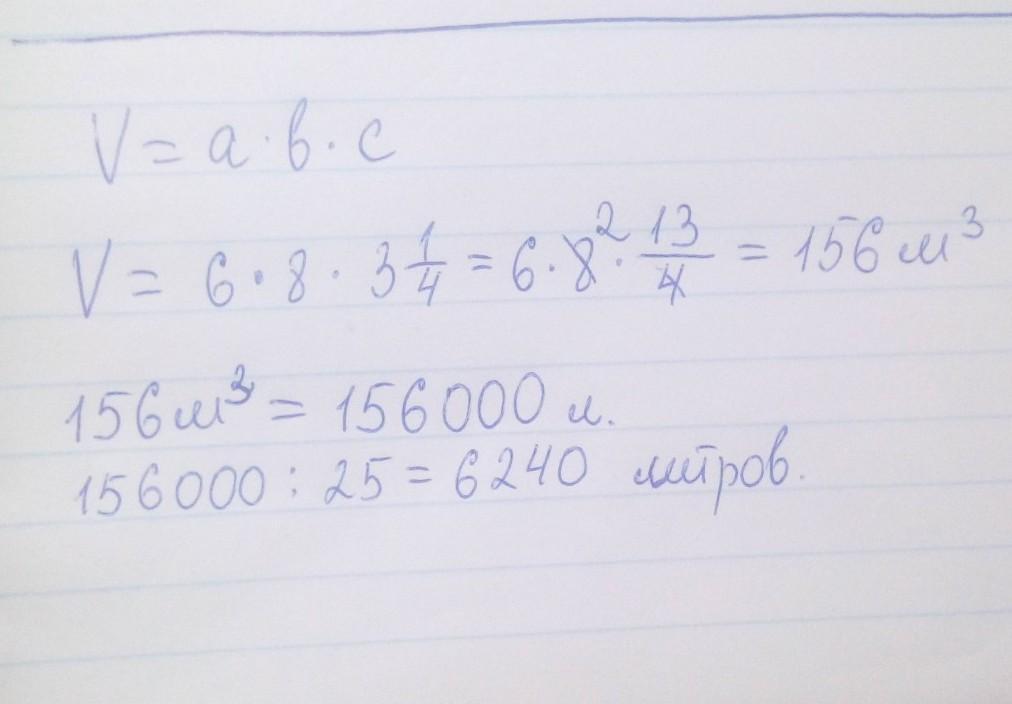 V = a · b · c
V = 6 · 8 · 3 1/4 = 6 · 8² · 13/4 = 156 м³
156 м³ = 156000 л.
156000 : 25 = 6240 литров.